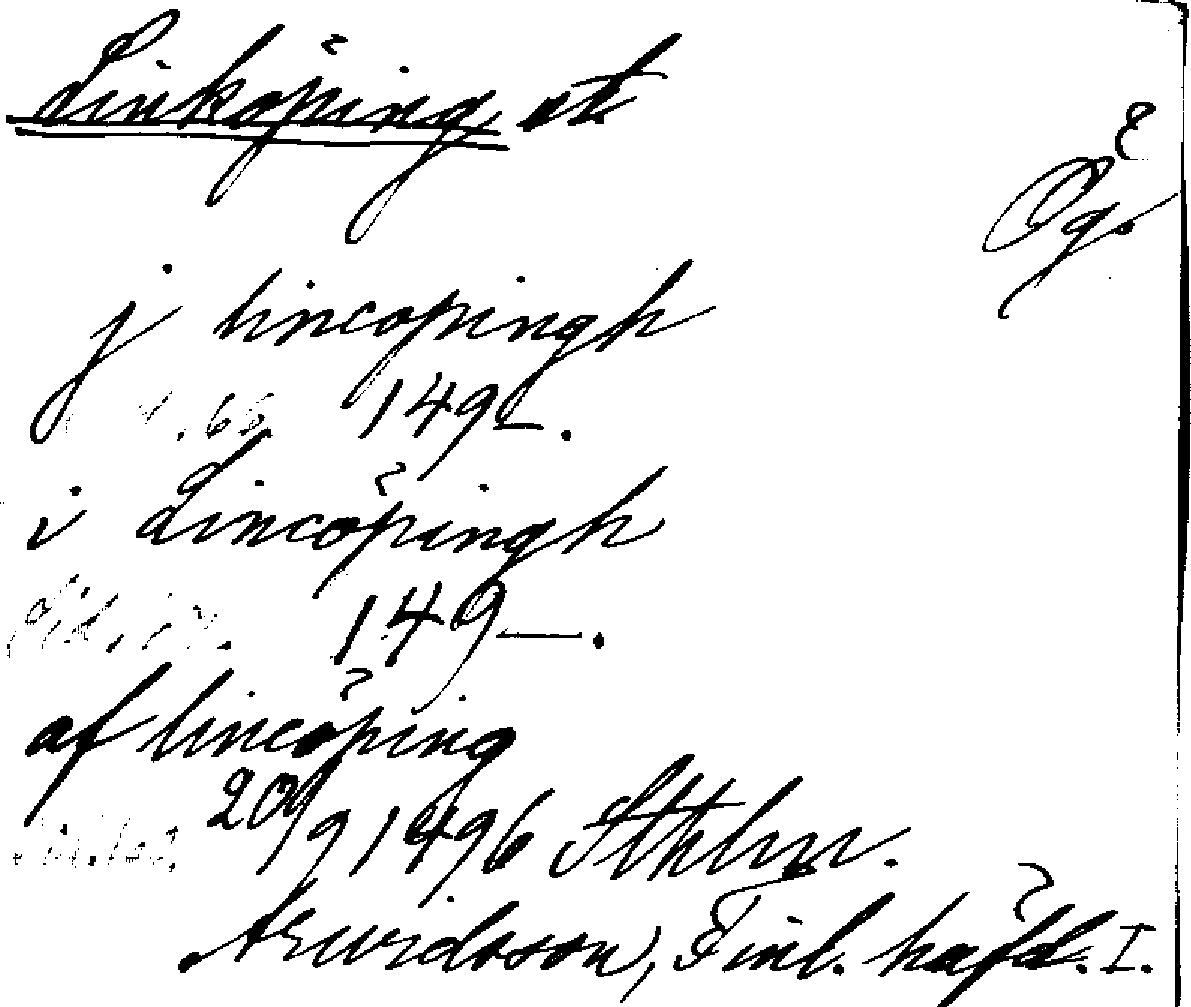 Linköping st
Ög.
j lincopingh
.65 149-.
i Lincöpingh
149—.
af lincöping
20/9 1496 Sthlm.
Arwidsson, Finl. häfd. I.